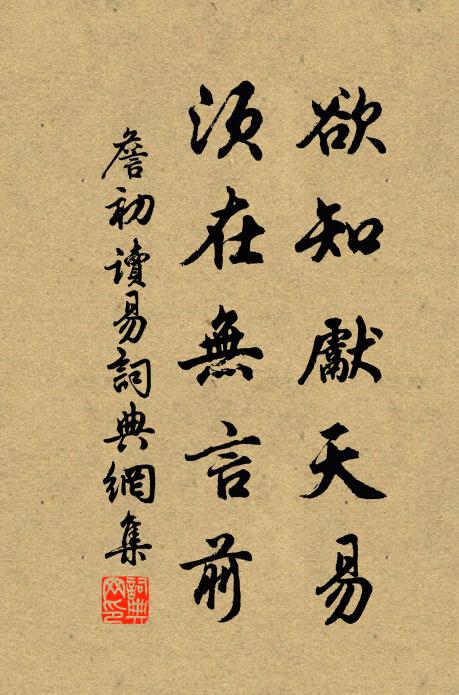 欲知獻天易
須在無言前
詹初讀易詞典網集
詞典网印